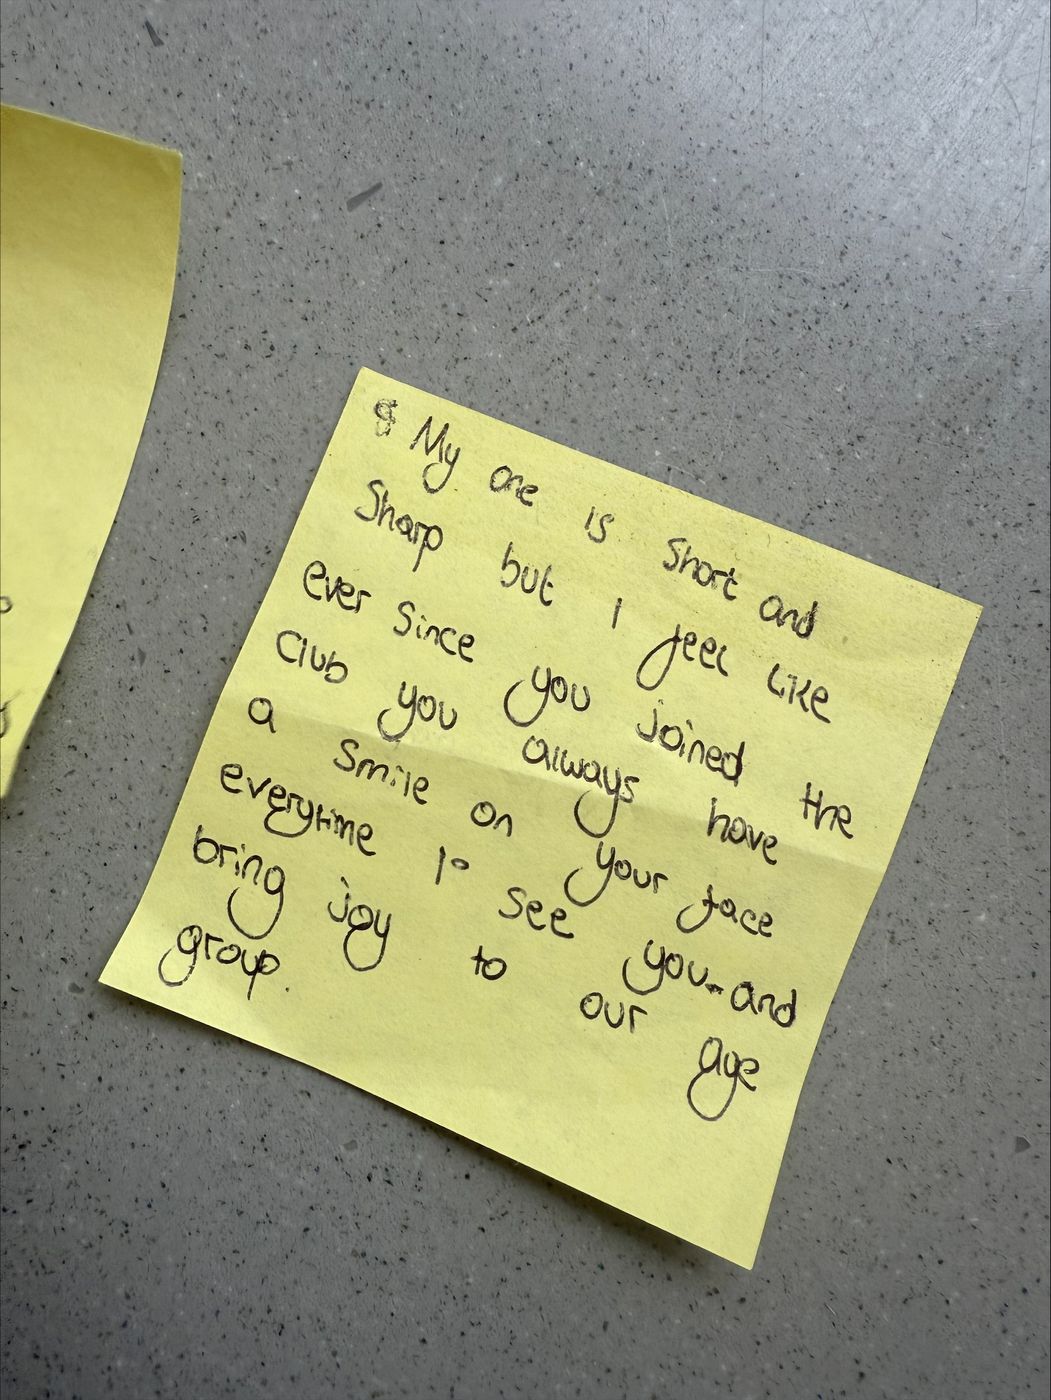 My one is short and
Sharp but I feel like
ever since you joined the
Club you always have
a smile on your face
everytime I see you and
bring joy to our age
group.